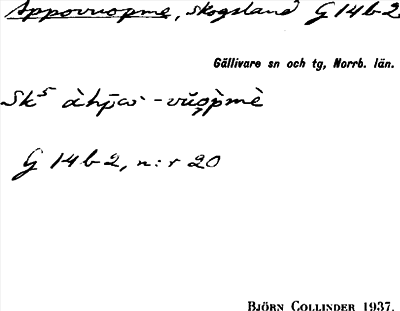 Appovuopme, skogsland G 14 b-2
Gällivare sn och tg, Norrb. län.
Sk⁵ àhp̄ὼ -vŭo̯p̀mè
G 14 b-2, n:r 20
BJÖRN COLLINDER 1937.